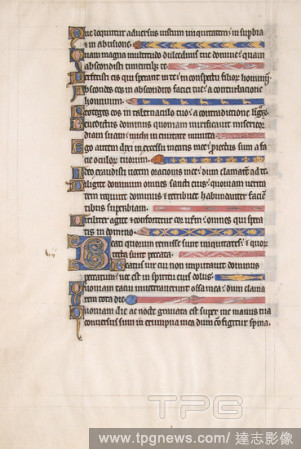 Que loquuntur adversus iustum iniquitatem: in superbia
et in abusione.
Quam magna multitudo dulcedinis tue domine: quam
abscondisti timentibus te.
Perfecisti eis qui sperant in te: in conspectu filiorum hominum.
Abscondes eos in abscondito faciei tue: a conturbatione
hominum.
Proteges eos in tabernaculo tuo: a contradictione linguarum.
Benedictus dominus: quoniam mirificavit misericor
diam suam michi in civitate munita.
Ego autem dixi in excessu mentis mee: proiectus sum a fa
cie oculorum tuorum.
Ideo exaudisti vocem orationis mee: dum clamarem ad te.
Diligite dominum omnes sancti eius: quoniam verita
tem requiret dominus et retribuet habundanter facien
tibus superbiam.
Viriliter agite et confortetur cor vestrum: omnes qui spera
tis in domino.
Beati quorum remisse sunt iniquitates: et quorum
tecta sunt peccata.
Beatus vir cui non imputavit dominus
peccatum: nec est in spiritu eius dolus.
Quoniam tacui inveteraverunt ossa mea: dum clama
rem tota die.
Quoniam die ac nocte gravata est super me manus tua:
conversus sum in erumpna mea dum configitur spina.
TPG
www.tpgnews.com / 達志影像